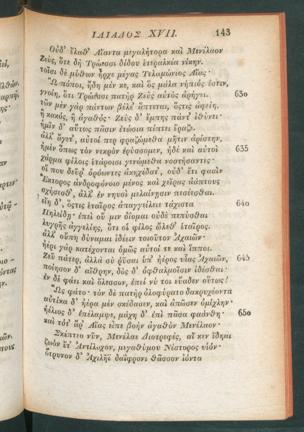 ΙΛΙΑΔΟΣ XVII. 143
Οὐδ' ἔλαθ' Αἴαντα μεγαλήτορα καὶ Μενέλαον
Ζεὺς, ὅτε δὴ Τρώεσσι δίδου ἑτεραλκέα νίκην.
τοῖσι δὲ μύθων ἦρχε μέγας Τελαμώνιος Αἴας·
Ὢ πόποι, ἤδη μέν κε, καὶ ὃς μάλα νήπιός ἐστιν,
γνοίη, ὅτι Τρώεσσι πατὴρ Ζεὺς αὐτὸς ἀρήγει. 630
τῶν μὲν γὰρ πάντων βέλε' ἅπτεται, ὅστις ἀφείη,
ἢ κακὸς, ἢ ἀγαθός· Ζεὺς δ' ἔμπης πάντ' ἰθύνει·
ἡμῖν δ' αὔτως πᾶσιν ἐτώσια πίπτει ἔραζε.
ἀλλ' ἄγετ', αὐτοί περ φραζώμεθα μῆτιν ἀρίστην,
ἠμὲν ὅπως τὸν νεκρὸν ἐρύσσομεν, ἠδὲ καὶ αὐτοὶ 635
χάρμα φίλοις ἑτάροισι γενώμεθα νοστήσαντες·
οἵ που δεῦρ' ὁρόωντες ἀκηχέδατ', οὐδ' ἔτι φασὶν
Ἕκτορος ἀνδροφόνοιο μένος καὶ χεῖρας ἀάπτους
σχήσεσθ', ἀλλ' ἐν νηυσὶ μελαίνῃσιν πεσέεσθαι.
εἴη δ', ὅστις ἑταῖρος ἀπαγγείλειε τάχιστα 640
Πηλείδῃ· ἐπεὶ οὔ μιν ὀΐομαι οὐδὲ πεπύσθαι
λυγρῆς ἀγγελίης, ὅτι οἱ φίλος ὤλεθ' ἑταῖρος.
ἀλλ' οὔπη δύναμαι ἰδέειν τοιοῦτον Ἀχαιῶν·
ἠέρι γὰρ κατέχονται ὁμῶς αὐτοί τε καὶ ἵπποι.
Ζεῦ πάτερ, ἀλλὰ σὺ ῥῦσαι ὑπ' ἠέρος υἷας Ἀχαιῶν, 645
ποίησον δ' αἴθρην, δὸς δ' ὀφθαλμοῖσιν ἰδέσθαι·
ἐν δὲ φάει καὶ ὄλεσσον, ἐπεί νύ τοι εὔαδεν οὕτως!
Ὣς φάτο· τὸν δὲ πατὴρ ὀλοφύρατο δακρυχέοντα·
αὐτίκα δ' ἠέρα μὲν σκέδασεν, καὶ ἀπῶσεν ὀμίχλην·
ἠέλιος δ' ἐπέλαμψε, μάχη δ' ἐπὶ πᾶσα φαάνθη· 650
καὶ τότ' ἄρ' Αἴας εἶπε βοὴν ἀγαθὸν Μενέλαον·
Σκέπτεο νῦν, Μενέλαε Διοτρεφὲς, αἴ κεν ἴδηαι
ζωὸν ἔτ' Ἀντίλοχον, μεγαθύμου Νέστορος υἱόν·
ὄτρυνον δ' Ἀχιλῆϊ δαΐφρονι θᾶσσον ἰόντα